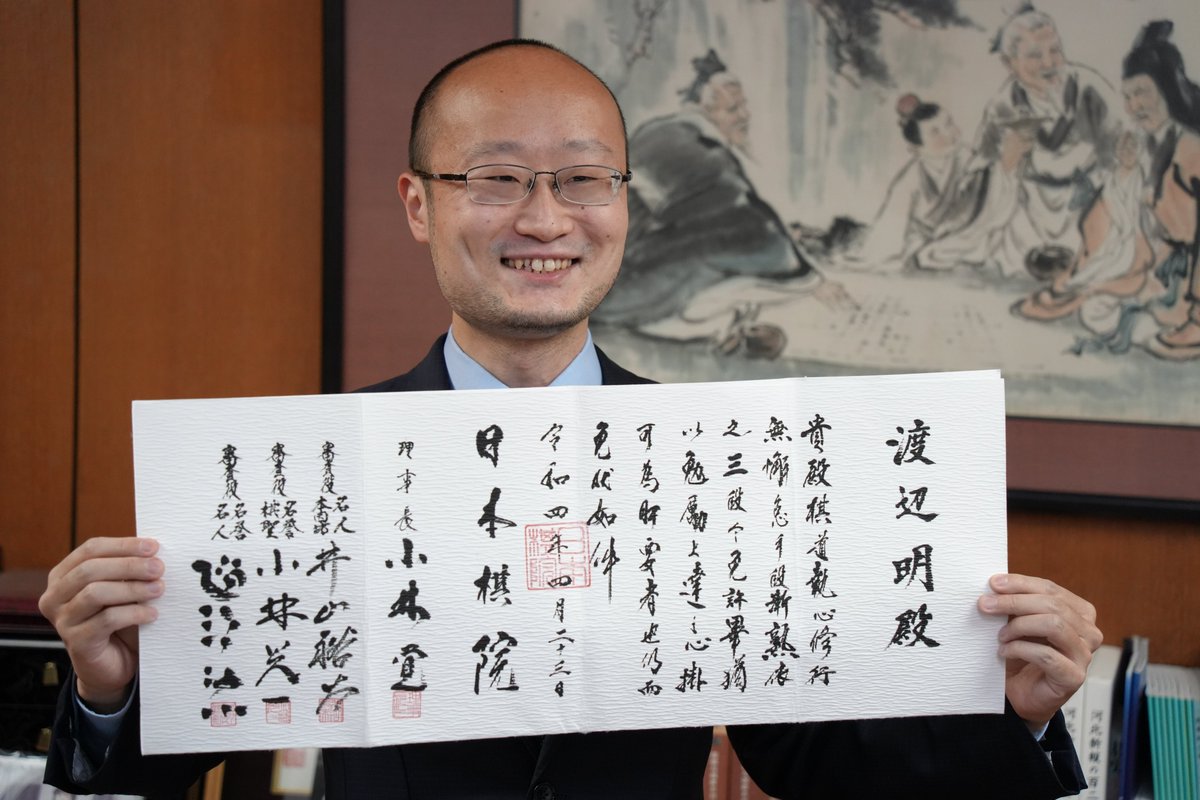 渡辺明殿
貴殿棋道執心修行
無懈怠手段漸熟依
之三段令免許畢猶
以勉励上達之心掛
可為肝要者也仍而
免状如件
令和四年四月二十三日
日本棋院
理事長 小林覚
審査役 本因坊 名人 井山裕太
審査役 名誉棋聖 小林光一
審査役 名誉名人 趙治勲